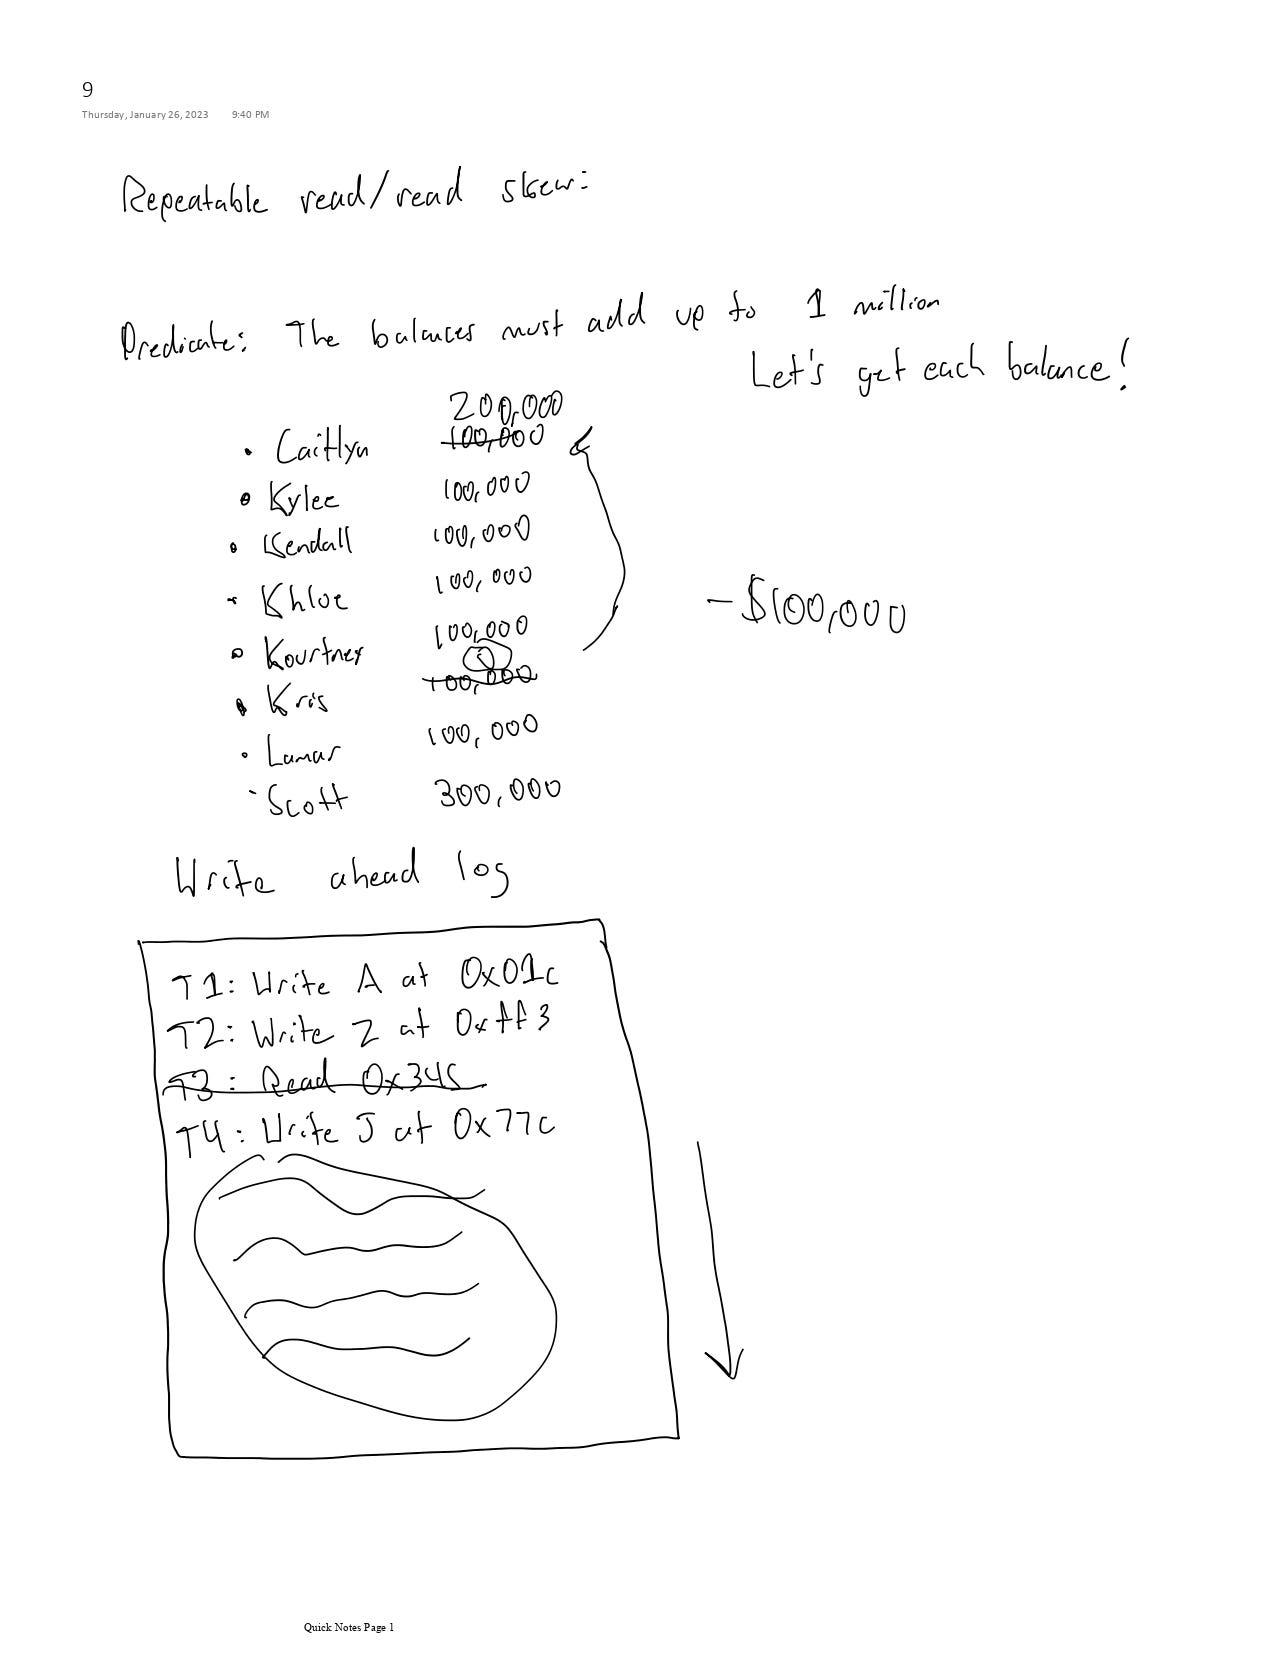 9
Thursday, January 26, 2023 9:40 PM
Repeatable read/read skew:
Predicate: The balances must add up to 1 million
Let's get each balance!
200,000
• Caitlyn 100,000
• Kylee 100,000
• Kendall 100,000
• Khloe 100,000
• Kourtney 100,000
0
• Kris 100,000
• Lamar 100,000
• Scott 300,000
- $100,000
Write ahead log
T1: Write A at 0x01c
T2: Write Z at 0xff3
T3: Read 0x345
T4: Write J at 0x77c
Quick Notes Page 1